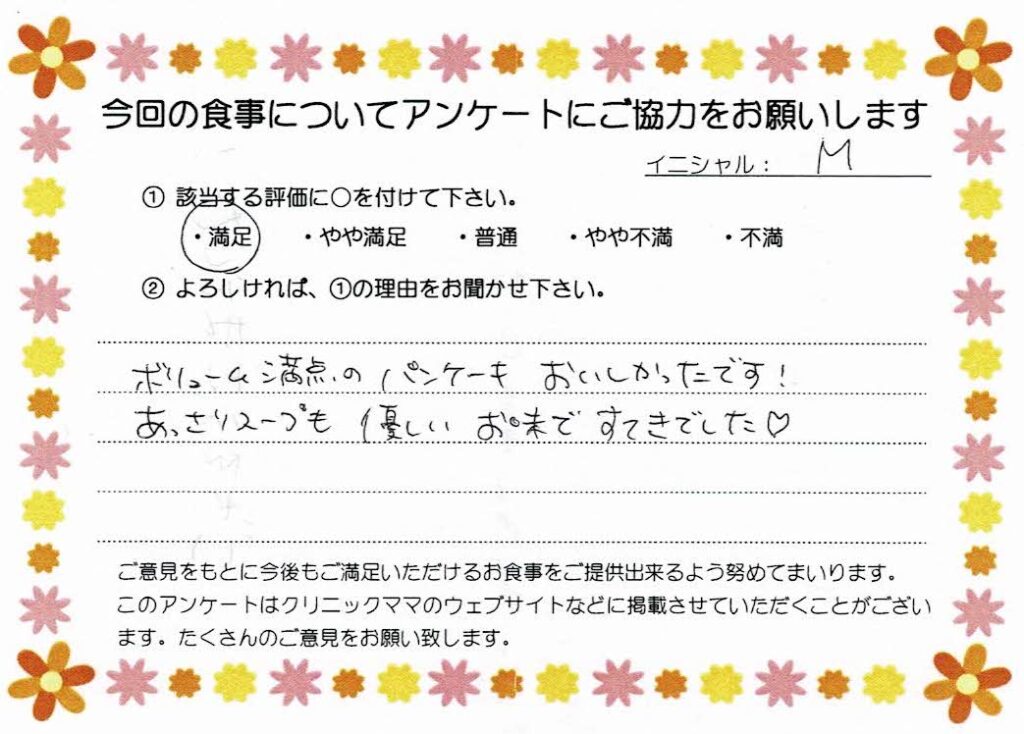 今回の食事についてアンケートにご協力をお願いします
イニシャル： M
① 該当する評価に○を付けて下さい。
・満足 ・やや満足 ・普通 ・やや不満 ・不満
② よろしければ、①の理由をお聞かせ下さい。
ボリューム満点のパンケーキ おいしかったです！
あっさりスープも 優しい お味で すてきでした♡
ご意見をもとに今後もご満足いただけるお食事をご提供出来るよう努めてまいります。
このアンケートはクリニックママのウェブサイトなどに掲載させていただくことがござい
ます。たくさんのご意見をお願い致します。